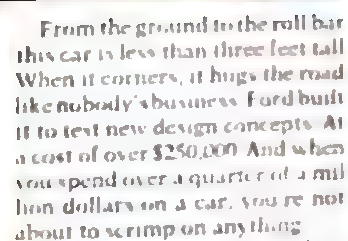 From the ground to the roll bar
this car is less than three feet tall
When it corners, it hugs the road
like nobody's business Ford built
it to test new design concepts At
a cost of over $250,000 And when
you spend over a quarter of a mil
lion dollars on a car, you're not
about to scrimp on anything